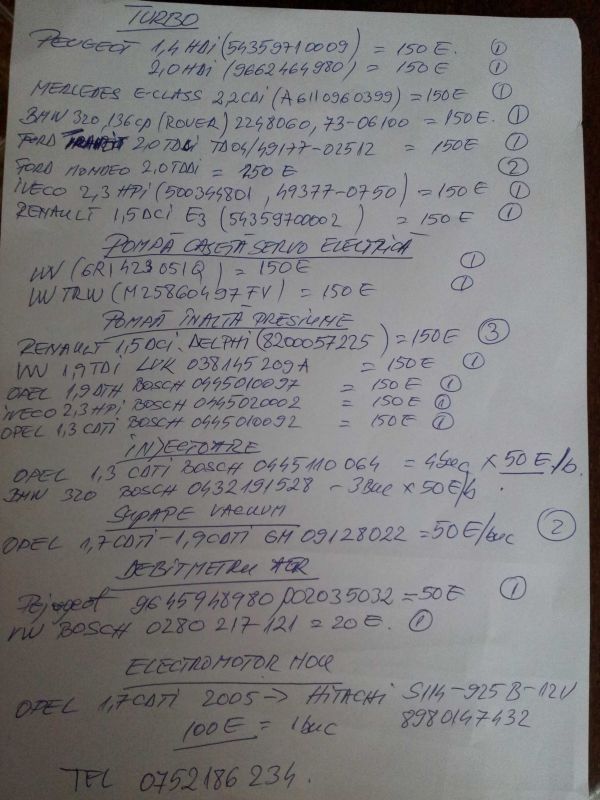 TURBO
PEUGEOT 1,4 HDi (54359710009) = 150 E. ①
2,0 HDi (9662464980) = 150 E ①
MERCEDES E-CLASS 2,2 CDi (A6110960399) = 150 E ①
BMW 320, 136CP (ROVER) 2248060, 73-06100 = 150 E. ①
FORD TRANSIT 2,0 TDDi TD04/49177-02512 = 150 E ①
FORD MONDEO 2,0 TDDi = 250 E ②
iVECO 2,3 HPi (500344801, 49377-0750) = 150 E ①
RENAULT 1,5 DCi E3 (54359700002) = 150 E ①
POMPĂ CASETA SERVO ELECTRICA
VW (6R1423051Q) = 150 E ①
VW TRW (M25860497FV) = 150 E ①
POMPĂ ÎNALTĂ PRESIUNE
RENAULT 1,5 DCi DELPHI (8200057225) = 150 E ③
VW 1,9 TDI LUK 038145209A = 150 E ①
OPEL 1,9 DTH BOSCH 0445010097 = 150 E ①
iVECO 2,3 HPi BOSCH 0445020002 = 150 E ①
OPEL 1,3 CDTi BOSCH 0445010092 = 150 E ①
iNJECTOARE
OPEL 1,3 CDTi BOSCH 0445110064 = 4buc × 50 E/b.
BMW 320 BOSCH 0432191528 - 3buc × 50 E/b.
SUPAPE VACUUM
OPEL 1,7 CDTi - 1,9 CDTi GM 09128022 = 50 E/buc ②
DEBITMETRU AER
Pejugeot 9645948980, 002035032 = 50 E ①
VW BOSCH 0280 217 121 = 20 E. ①
ELECTROMOTOR NOU
OPEL 1,7 CDTi 2005 -> HITACHI S114-925B-12V
100 E = 1buc 8980147432
TEL 0752186234.